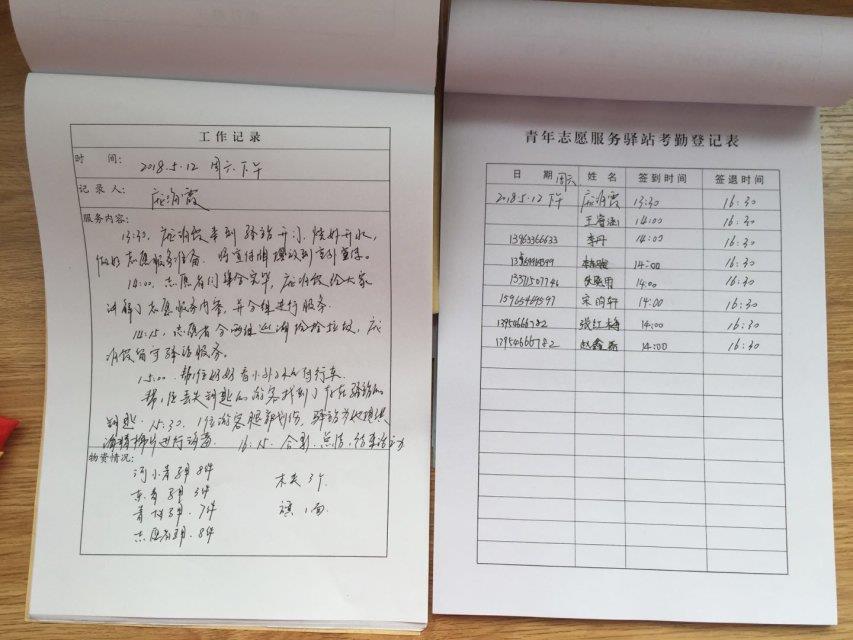 工作记录
时 间: 2018.5.12 周六下午
记录人: 应消霞
服务内容:
13:30, 应消霞来到驿站开门, 烧好开水,
做好志愿服务准备. 将宣传用摆放到
14:00, 志愿者们集合完毕, 应消霞给大家
讲解了志愿服务内容, 并分组进行服务.
14:15, 志愿者分两组巡湖捡捡垃圾, 应
消霞留守驿站服务。
15:00. 帮住 看小孩和自行车.
帮1位丢失钥匙的游客找到了存在驿站的
钥匙. 15:30, 1位游客腿部划伤, 驿站为他提供
酒精棉片进行消毒. 16:15. 合影. 总结. 结束活动
物资情况:
河小青马甲 8件
马甲 3件
青 马甲. 7件
志愿者马甲. 8件
木夹 3个.
旗 1面.
青年志愿服务驿站考勤登记表
日 期 姓 名 签到时间 签退时间
2018.5.12 下午 周六 应消霞 13:30 16:30
王 14:00 16:30
13963366633 李丹 14:00 16:30
14:00 16:30
13371507746 14:00 16:30
15965469597 宋雨轩 14:00 16:30
13954666782 张红梅 14:00 16:30
13954666782 赵鑫磊 14:00 16:30